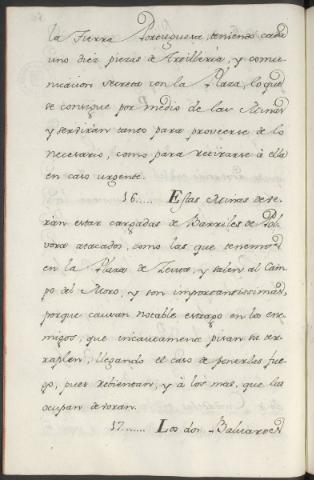 la Tierra Portuguesa, teniendo cada
uno diez piezas de Artilleria, y comu-
nicacion secreta con la Plaza, lo qual
se consigue por medio de las Minas
y servirán tanto para proveerse de lo
necesario, como para retirarse à ella
en caso urgente.
16..... Estas Minas de-
rán estar cargadas de Barriles de Pol-
vora atacados, como las que tenemos
en la Plaza de Zeuta, y salen al Cam-
po del Moro, y son importantissimas,
porque causan notable estrago en los ene-
migos, que incautamente pisan su ter-
raplen, llegando el caso de ponerles fue-
go, pues rebientan, y à los mas, que las
ocupan devoran.
17...... Los dos Baluartes